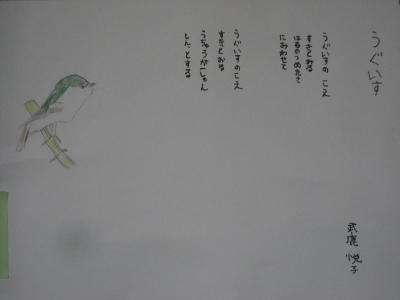 うぐいす
うぐいすの こえ
すきとおる
はるのつめたさ
におわせて
うぐいすの こえ
すきとおる
うちゅうが一しゅん
しん、とする
武鹿 悦子